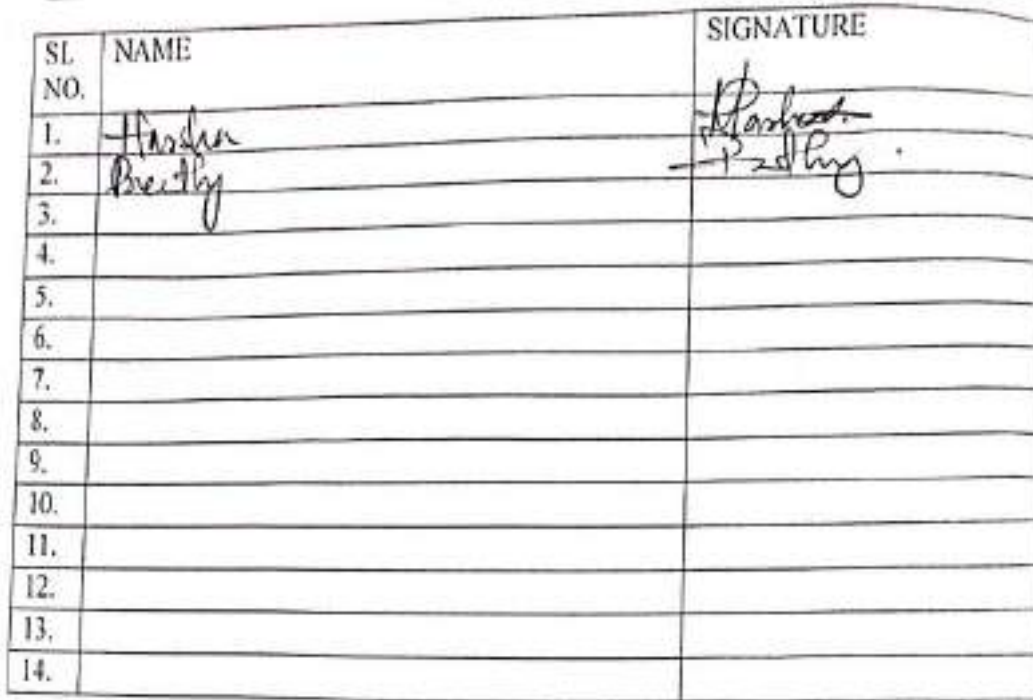 SL NO. NAME SIGNATURE
1. Harsha
2.
3.
4.
5.
6.
7.
8.
9.
10.
11.
12.
13.
14.